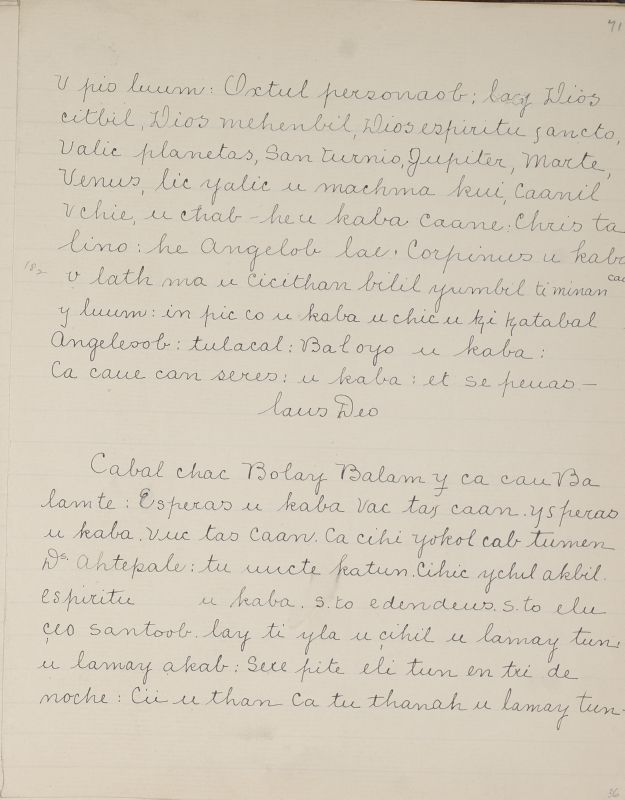 71
V pis luum: Oxtul personaob; lay Dios
citbil, Dios mehenbil, Dios espiritu sancto,
Valic planetas, San turnio, Jupiter, Marte,
Venus, lic yalic u machma kui, Caanil
Vchie, u chab - he u kaba caane: Chris ta
lino: he Angelob lae. Corpinus u kaba
182
v lath ma u cicithan bilil yumbil ti minan caa
y luum: in pic co u kaba u chic u ki katabal
Angelesob: tulacal: Baloyo u kaba:
Ca caue can seres: u kaba: et se peuas -
laus Deo
Cabal chac Bolay Balam y ca cau Ba
lamte: Esperas u kaba Vac tas caan. ysperas
u kaba. Vuc tas Caan. Ca cihi yokol cab tumen
Ds. Ahtepale: tu uucte katun. Cihic ychil akbil.
espiritu u kaba. s.to edendeus. s.to elu
çeo santoob. lay ti yla u çihil u lamay tun,
u lamay akab: Sece pite eli tun en tri de
noche: Cii u than Ca tu thanah u lamay tun.
36